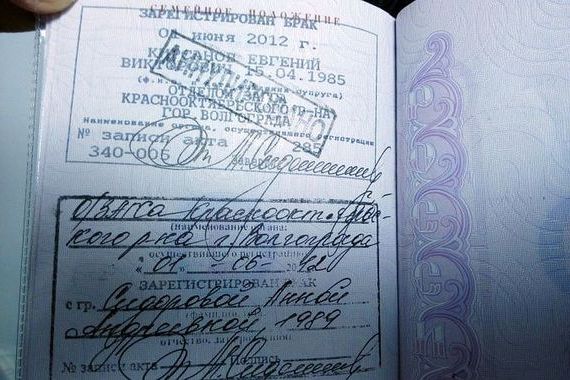 СЕМЕЙНОЕ ПОЛОЖЕНИЕ
ЗАРЕГИСТРИРОВАН БРАК
июня 2012 г.
ЕВГЕНИЙ
15.04.1985
супруга)
ОТДЕЛОМ
КРАСНООКТЯБРЬСКОГО Р-НА
ГОР. ВОЛГОГРАДА
Наименование органа, осуществившего регистрацию
№ записи акта 285
340-006
ОЗАГСа Красноокт.
кого р-на г. Волгограда
(наименование органа,
осуществившего регистрацию)
« 01 » 06
ЗАРЕГИСТРИРОВАН БРАК
с гр. Сидоровой Анной
Андреевной, 1989
отчество, дата рождения)
№ записи акта Подпись